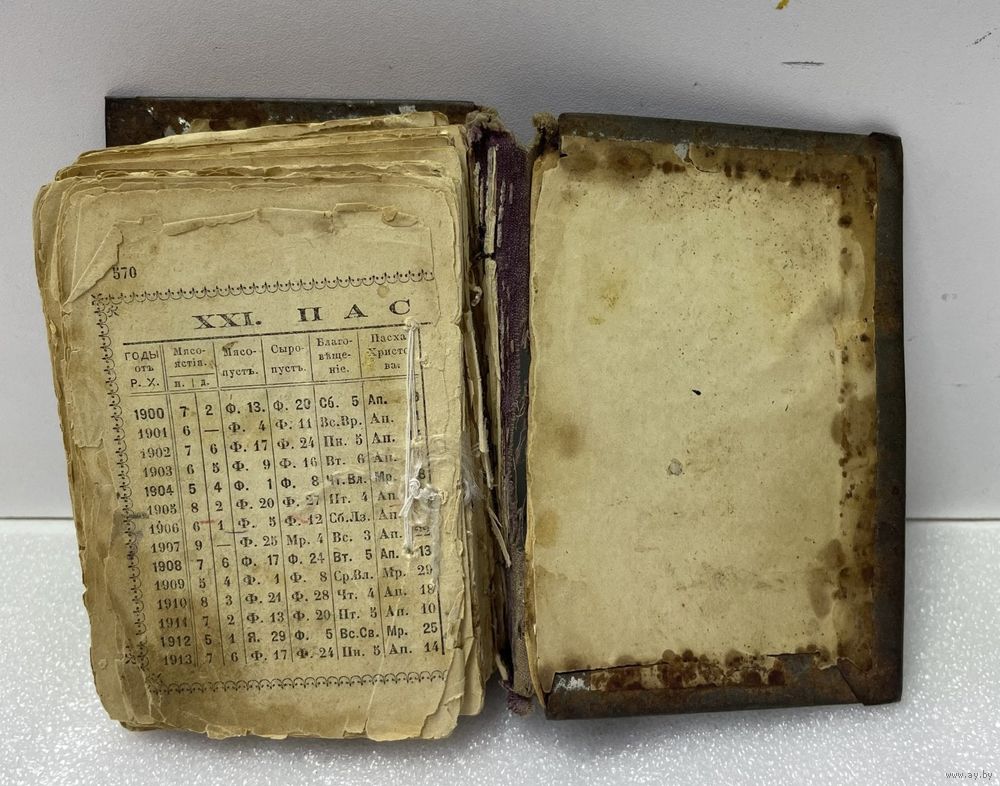 570
XXI. ПАС
ГОДЫ отъ Р. Х. Мясоястія. н. д. Мясопустъ. Сыропустъ. Благовѣщеніе. Пасха Христова.
1900 7 2 Ф. 13. Ф. 20 Сб. 5 Ап.
1901 6 — Ф. 4 Ф. 11 Вс.Вр. Ап.
1902 7 6 Ф. 17 Ф. 24 Пн. 5 Ап.
1903 6 5 Ф. 9 Ф. 16 Вт. 6 Ап.
1904 5 4 Ф. 1 Ф. 8 Чт.Вл. Мр.
1905 8 2 Ф. 20 Ф. 27 Пт. 4 Ап.
1906 6 1 Ф. 5 Ф. 12 Сб.Лз. Ап.
1907 9 — Ф. 25 Мр. 4 Вс. 3 Ап. 22
1908 7 6 Ф. 17 Ф. 24 Вт. 5 Ап. 13
1909 5 4 Ф. 1 Ф. 8 Ср.Вл. Мр. 29
1910 8 3 Ф. 21 Ф. 28 Чт. 4 Ап. 18
1911 7 2 Ф. 13 Ф. 20 Пт. 5 Ап. 10
1912 5 1 Я. 29 Ф. 5 Вс.Св. Мр. 25
1913 7 6 Ф. 17 Ф. 24 Пн. 5 Ап. 14
www.ay.by